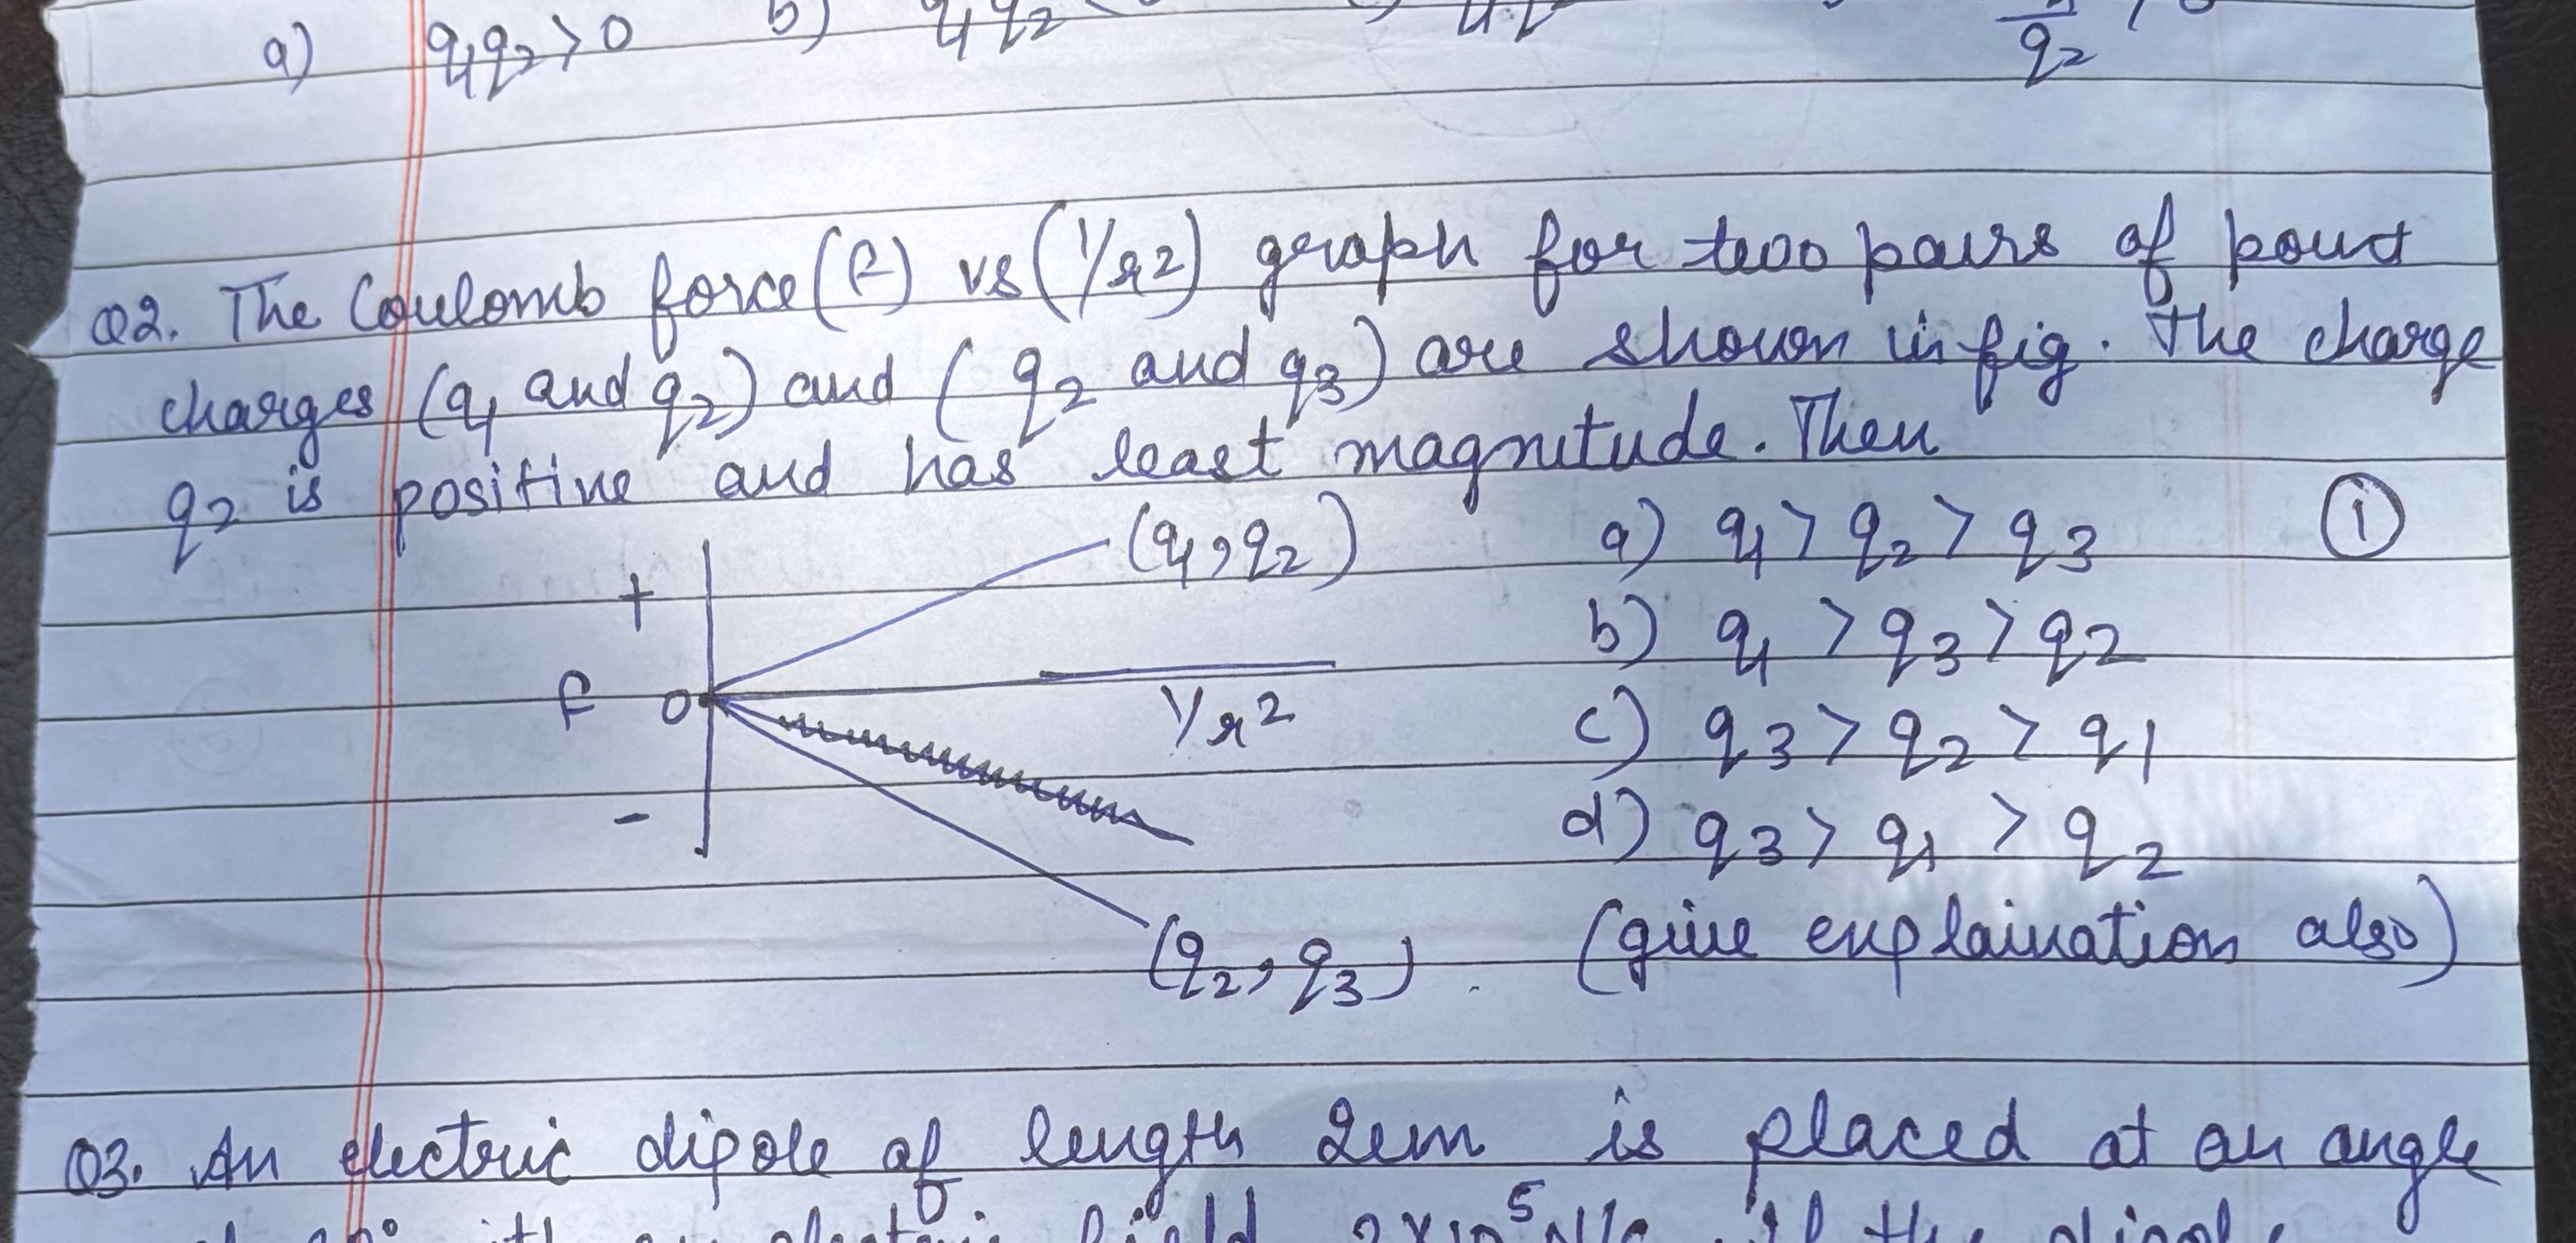 a) q₁q₂ > 0 b) q₁q₂ q₂
Q2. The Coulomb force (F) vs (1/r2) graph for two pairs of point
charges (q₁ and q₂) and (q₂ and q₃) are shown in fig. The charge
q₂ is positive and has least magnitude. Then
(q₁, q₂) a) q₁ > q₂ > q₃ (1)
+
b) q₁ > q₃ > q₂
F 0 1/r²
c) q₃ > q₂ > q₁
-
d) q₃ > q₁ > q₂
(q₂, q₃). (give explaination also)
Q3. An electric dipole of length 2cm is placed at an angle